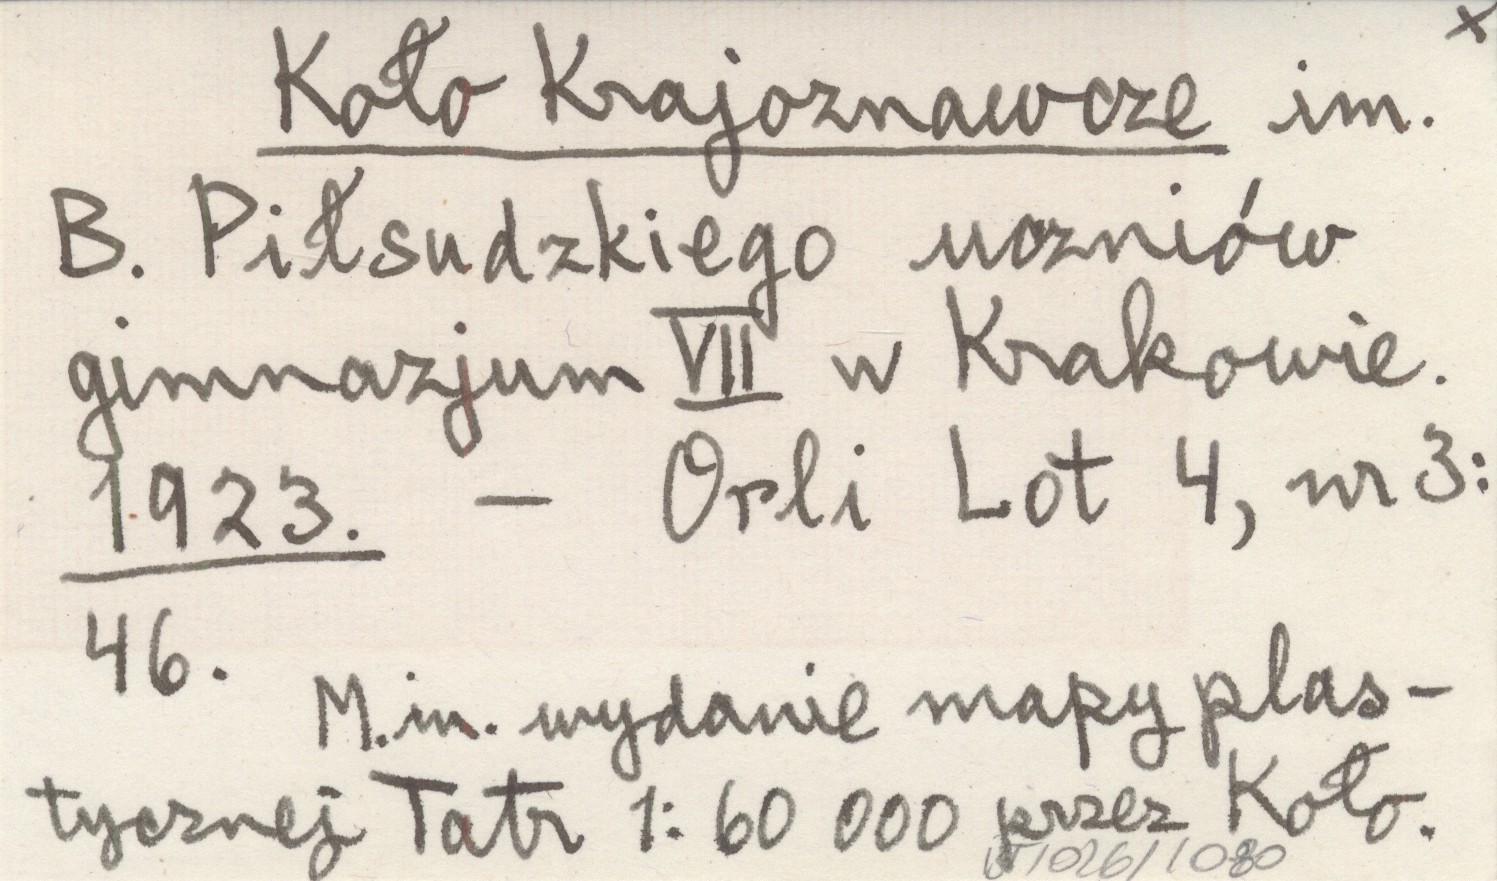 x
Koło Krajoznawcze im.
B. Piłsudzkiego uczniów
gimnazjum VII w Krakowie.
1923. — Orli Lot 4, nr 3:
46.
M.in. wydanie mapy plas-
tycznej Tatr 1:60 000 przez Koło.
1026/1080